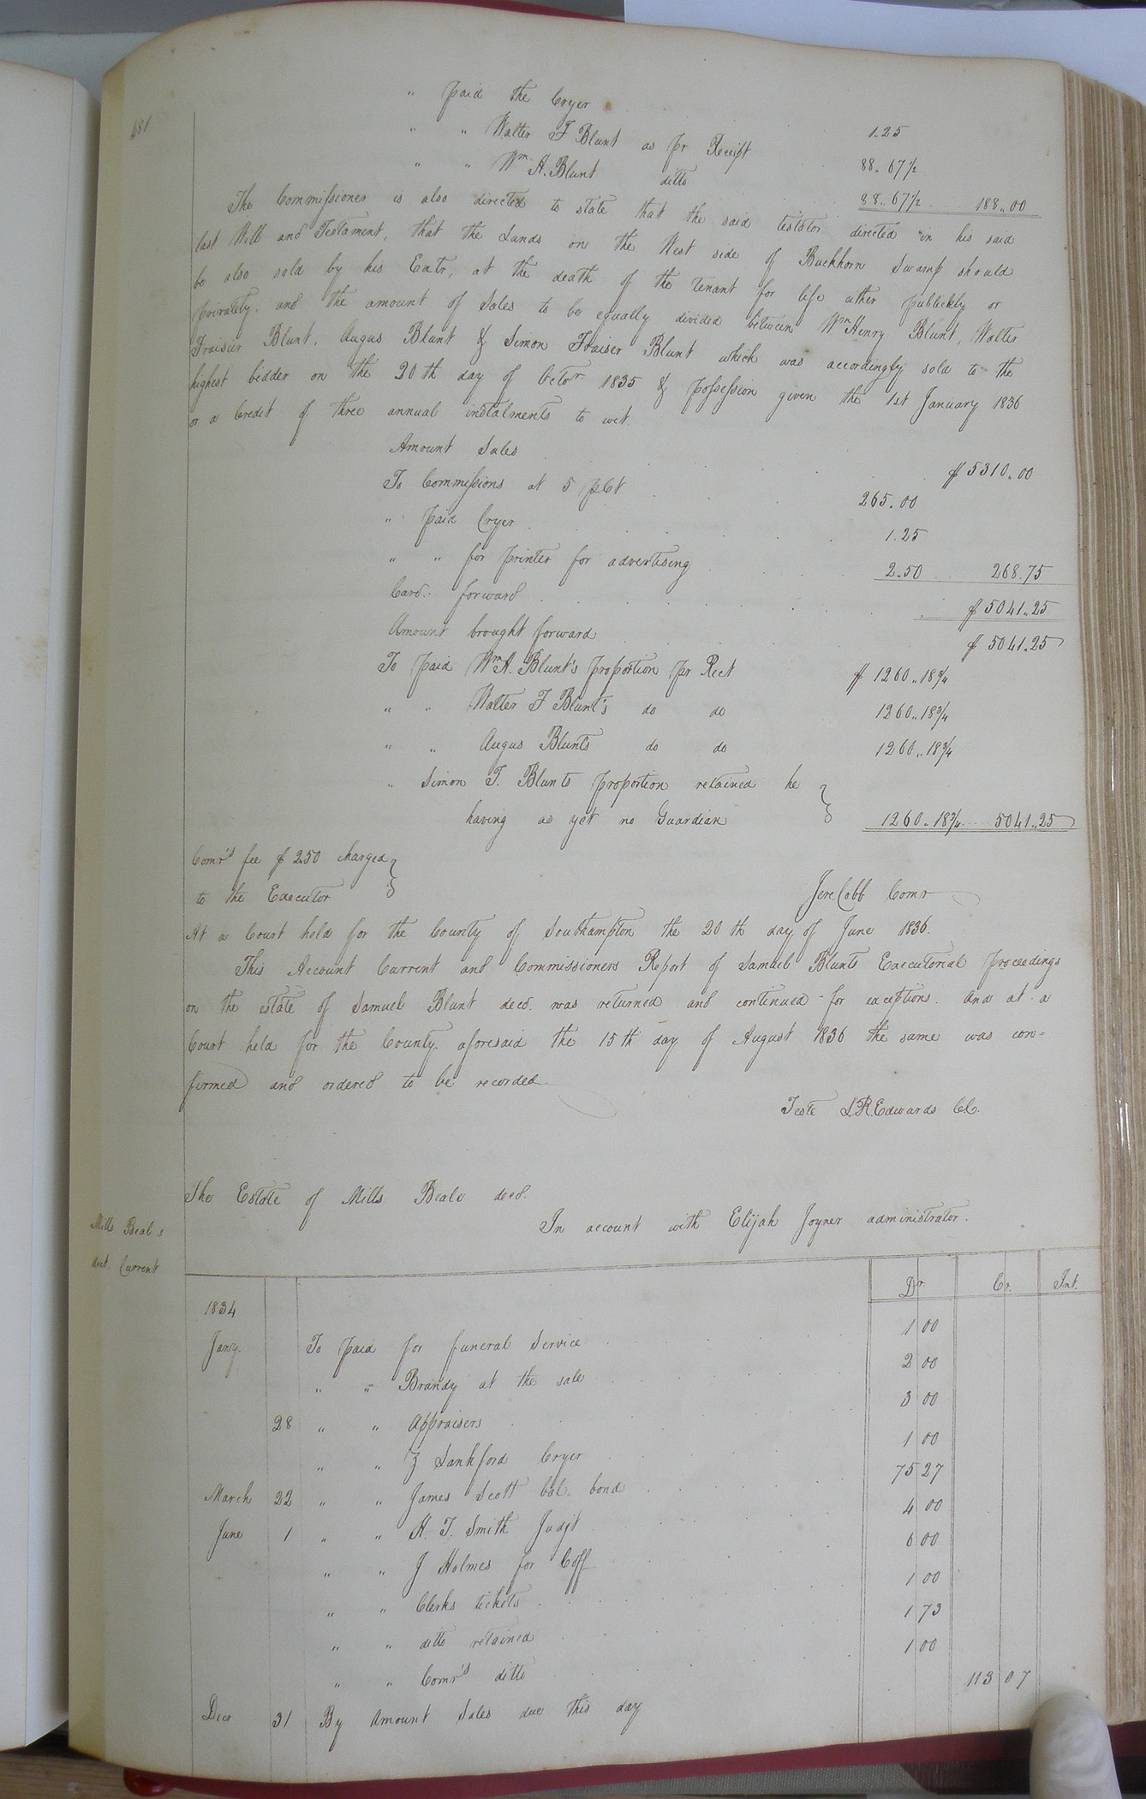 481
" Paid the Cryer 1.25
" " Walter F Blunt as pr Receipt 88..67½
" " Wm H. Blunt ditto 88..67½ 188..00
The Commissioner is also directed to state that the said testator directed in his said
last Will and Testament, that the Lands on the West side of Buckhorn Swamp should
be also sold by his Extr, at the death of the tenant for life either publickly or
privately, and the amount of Sales to be equally divided between Wm Henry Blunt, Walter
Fraiser Blunt, Augus Blunt & Simon Fraiser Blunt which was accordingly sold to the
highest bidder on the 20th day of Octor 1835 & possession given the 1st January 1836
on a Credit of three annual instalments to wit
Amount Sales $5310.00
To Commissions at 5 pCt 265.00
" Paid Cryer 1.25
" " for printer for advertising 2.50 268.75
Card. forward $5041..25
Amount brought forward $5041.25
To paid Wm H. Blunt's proportion pr Rect $1260..18¾
" " Walter F Blunt's do do 1260..18¾
" " Augus Blunts do do 1260..18¾
" Simon F. Blunts proportion retained he
having as yet no Guardian 1260..18¾ 5041..25
Comr's fee $2.50 charged
to the Executor
Jere Cobb Comr
At a Court held for the County of Southampton the 20th day of June 1836.
This Account Current and Commissioners Report of Samuel Blunts Executorial proceedings
on the estate of Samuel Blunt decd. was returned and continued for exceptions. And at a
Court held for the County aforesaid the 15th day of August 1836 the same was con-
firmed and ordered to be recorded
Teste L. R. Edwards Cl.
The Estate of Mills Beale decd.
In account with Elijah Joyner administrator.
Mills Beal's
Acct Current
Dr. Cr. Int.
1834
Jany. To paid for funeral Service 1 00
" " Brandy at the sale 2 00
28 " " Appraisers 3 00
" " Z Lankford Cryer 1 00
March 22 " " James Scott bal. bond 75 27
June 1 " " H. T. Smith Judgt 4 00
" " J Holmes for Coff 6 00
" " Clerks tickets 1 00
" " ditto retained 1 73
" " Comr's ditto 1 00
Dec 31 By Amount Sales due this day 113 07